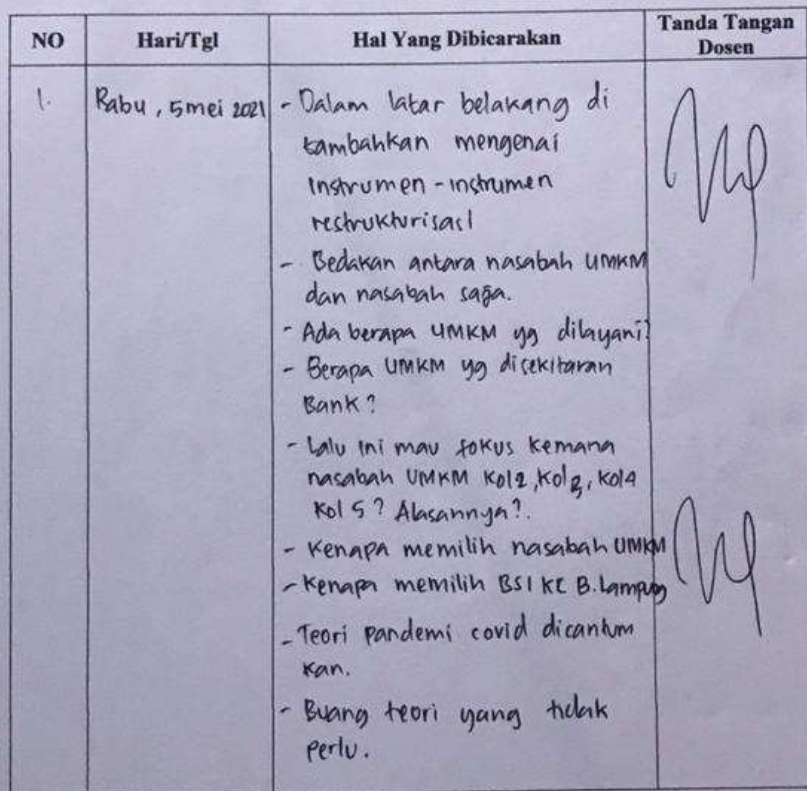 NO Hari/Tgl Hal Yang Dibicarakan Tanda Tangan Dosen
1. Rabu, 5 mei 2021 - Dalam latar belakang di
tambahkan mengenai
Instrumen - instrumen
restrukturisasi
- Bedakan antara nasabah UMKM
dan nasabah saja.
- Ada berapa UMKM yg dilayani?
- Berapa UMKM yg disekitaran
Bank?
- Lalu ini mau fokus kemana
nasabah UMKM Kol2, Kol3, Kol4
Kol 5? Alasannya?.
- Kenapa memilih nasabah UMKM
- Kenapa memilih BSI KC B. Lampung
- Teori pandemi covid dicantum
kan.
- Buang teori yang tidak
perlu.